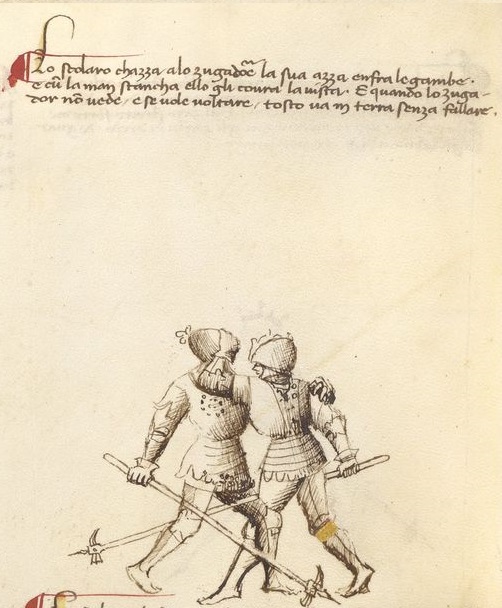 Lo scolaro chazza alo zugadore la sua azza enfra le gambe.
e cu la man stancha ello gli covra la vista. E quando lo zuga-
dor nō vede, e se vole voltare, tosto va in terra senza fallare.